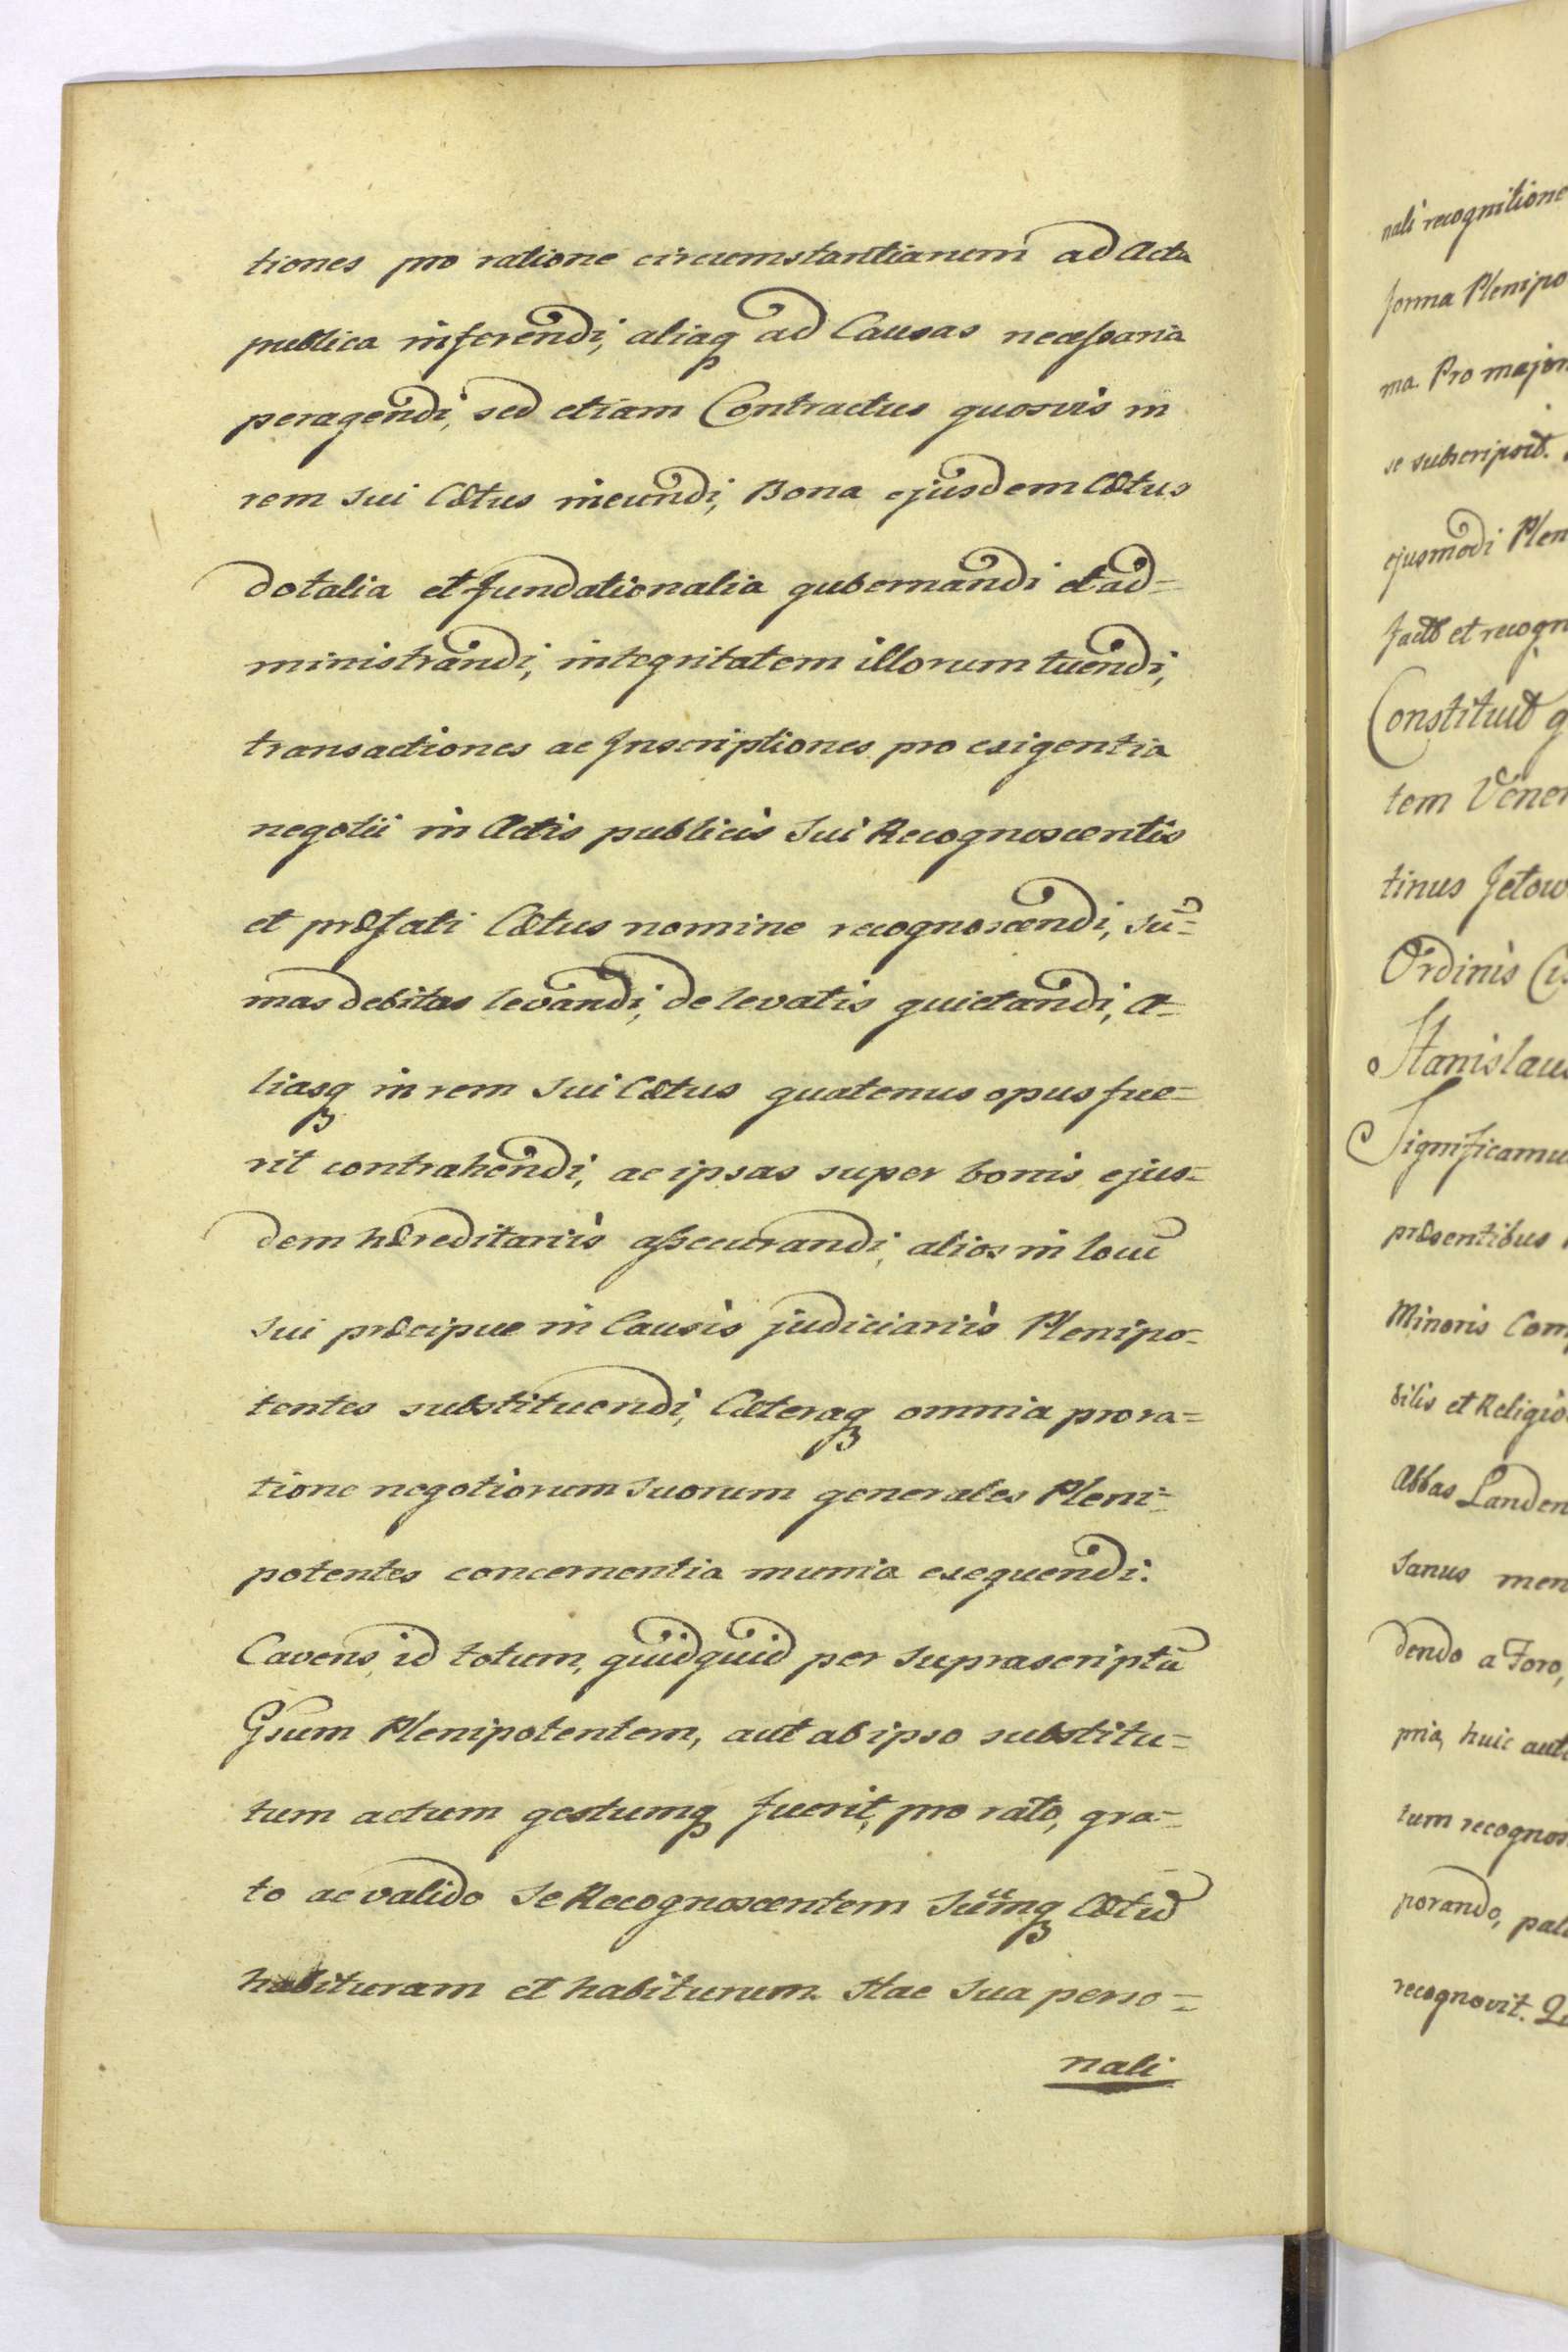 tiones pro ratione circumstantiarum ad Acta
publica inferendi, aliaq ad Causas necessaria
peragendi, sed etiam Contractus quosvis in
rem sui Cætus ineundi, Bona ejusdem Cætus
dotalia et fundationalia gubernandi et ad=
ministrandi, integritatem illorum tuendi,
transactiones ac Inscriptiones pro exigentia
negotii in Actis publicis sui Recognoscentis
et præfati Cætus nomine recognoscendi, sū=
mas debitas levandi, de levatis quietandi, A=
liasq in rem sui Cætus quatenus opus fue=
rit contrahendi, ac ipsas super bonis ejus=
dem hæreditariis assecurandi, alios in locū
sui præcipue in Causis judiciariis Plenipo=
tentes substituendi, Cæteraq omnia pro ra=
tione negotiorum suorum generales Pleni=
potentes concernentia munia exequendi.
Cavens id totum, quidquid per suprascriptū
Gsum Plenipotentem, aut ab ipso substitu=
tum actum gestumq fuerit, pro rato, gra=
to ac valido se Recognoscentem suūmq Cætū
habituram et habiturum. Hac sua perso=
nali
nali recognitione
forma Plenipo
ma. Pro major
se subscripsit.
ejusmodi Plen
facto et recogn
Constituit q
tem Vener
tinus Jetow
Ordinis Cis
Stanislaus
Significamu
præsentibus
Minoris Com
bilis et Religio
Abbas Landen
sanus men
dendo a Foro,
pria, huic
tum recognos
porando, pal
recognovit.